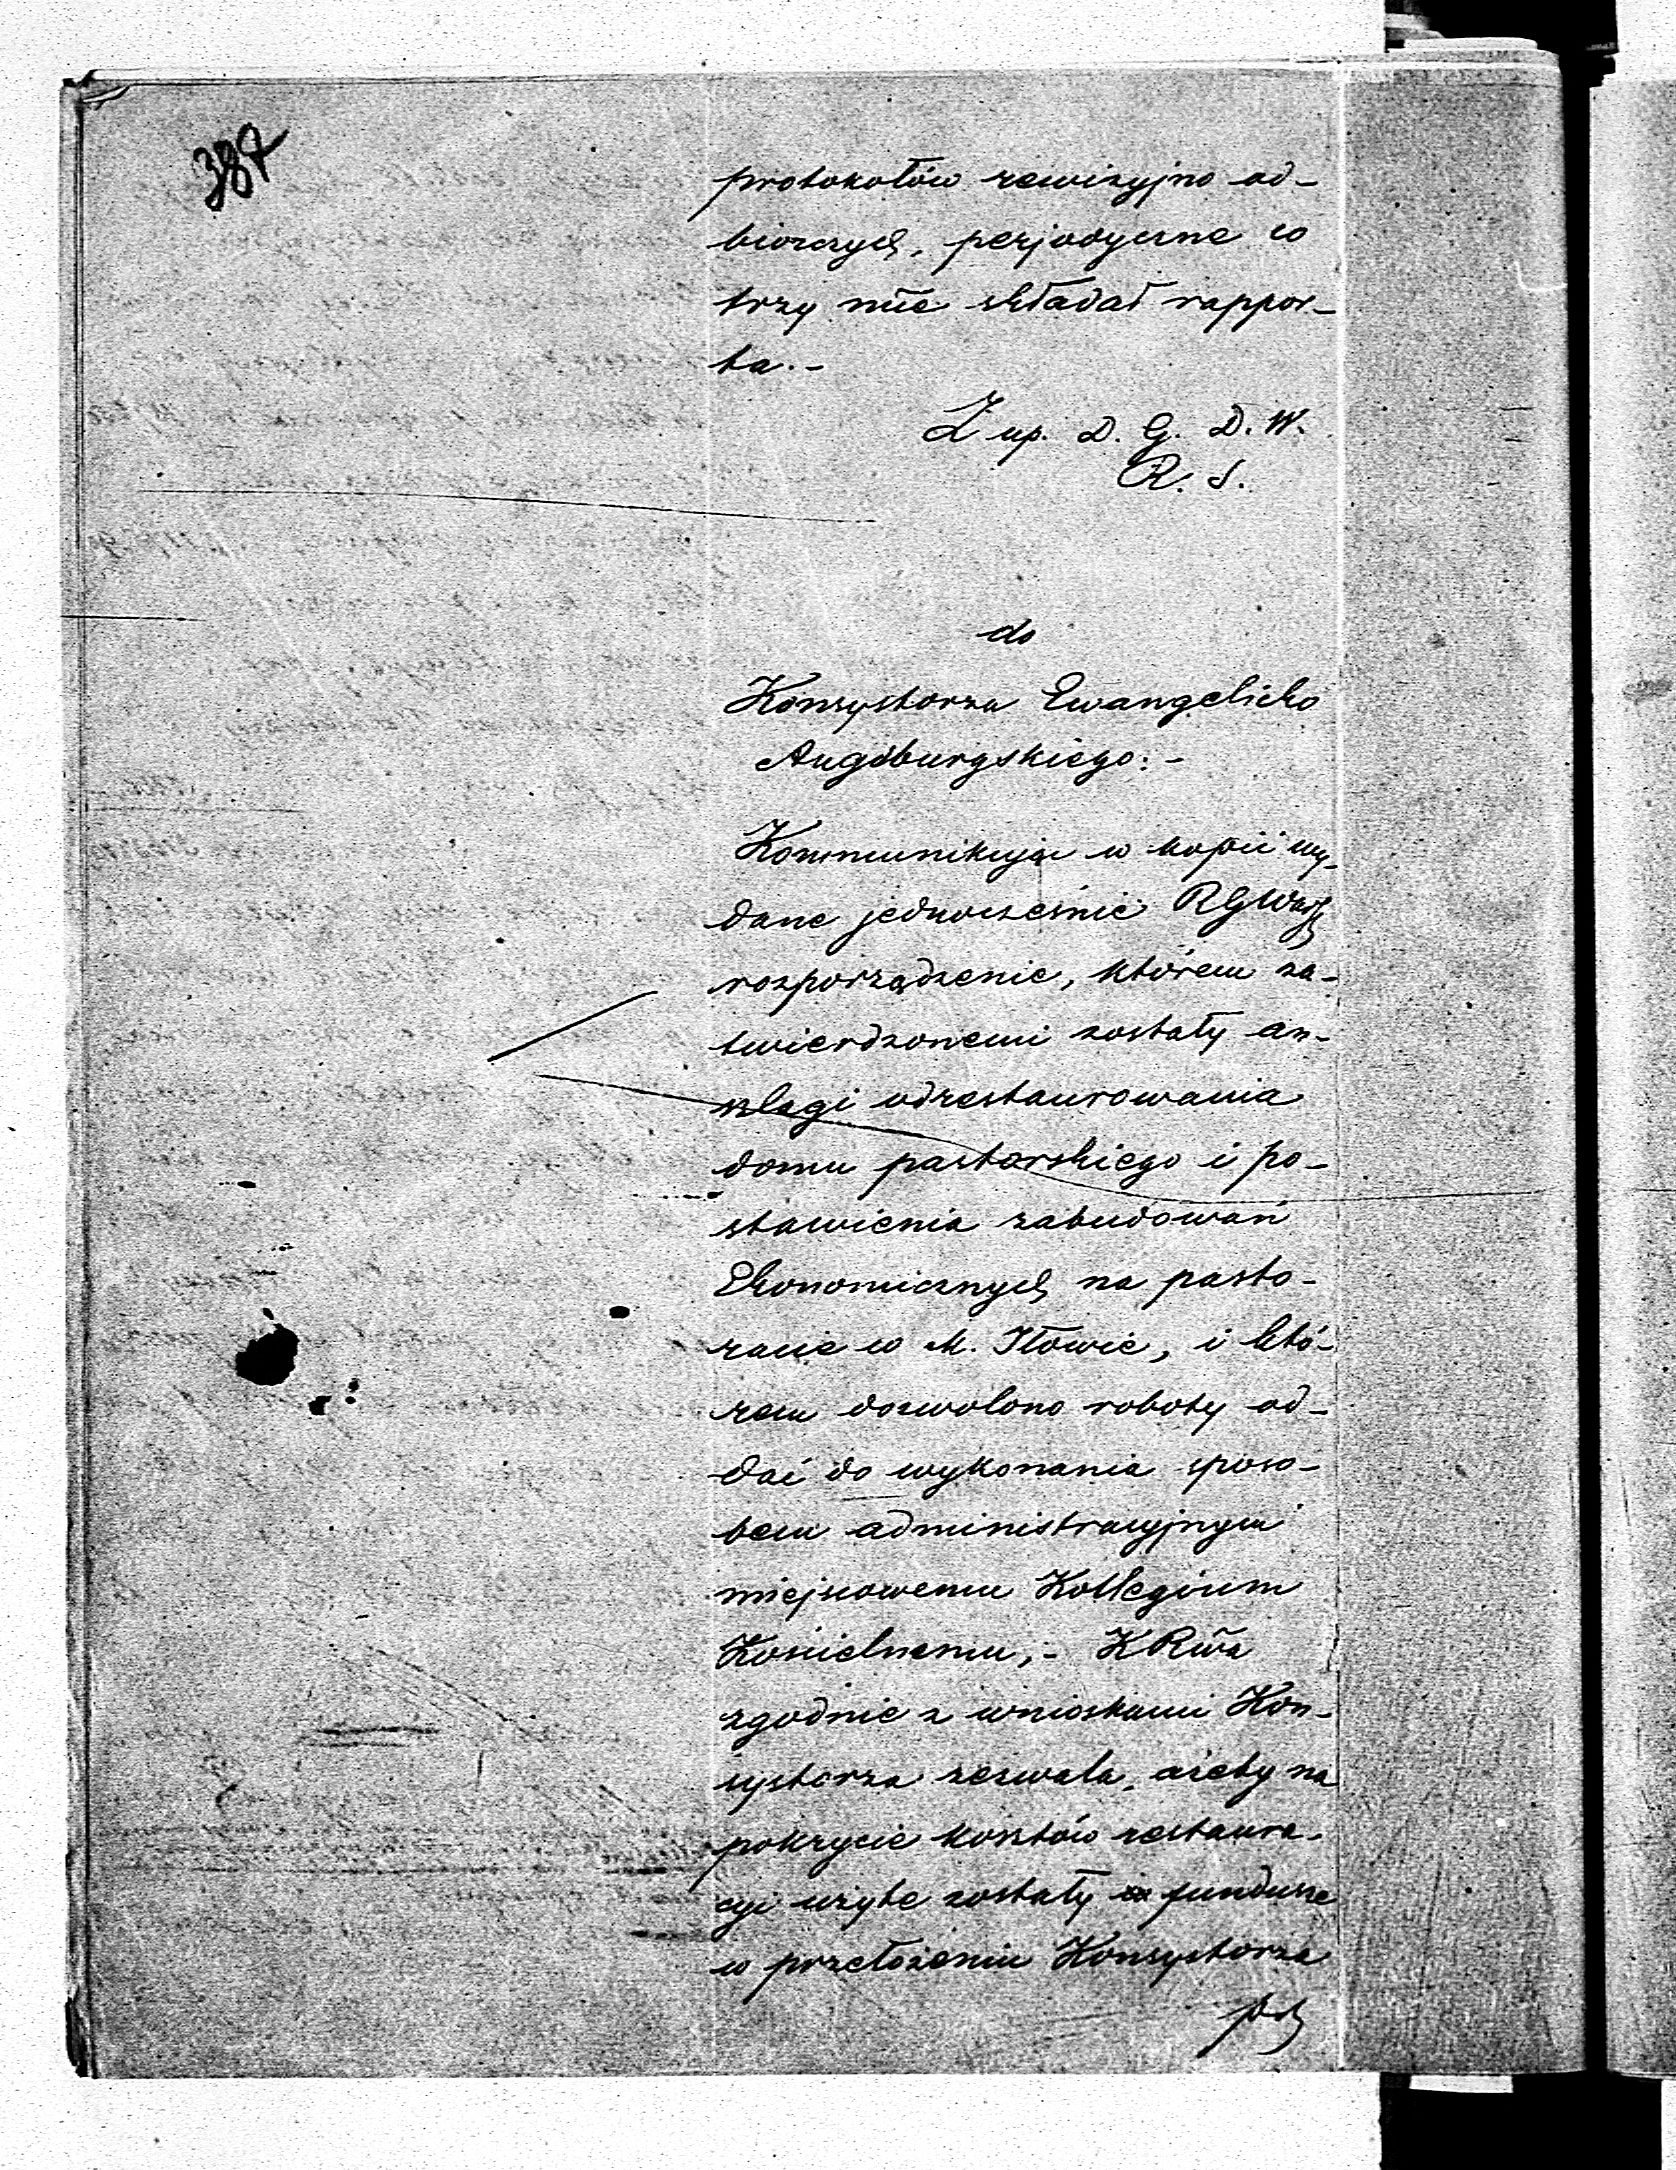 387
protokołów rewizyjno od-
biorczych, perjodyczne co
trzy mce składał rappor-
ta.-
Z up. D. G. D. W.
R. S.
do
Konsystorza Ewangelicko
Augsburgskiego:-
Kommunikując w kopii wy-
dane jednocześnie RGWarsz
rozporządzenie, którem za-
twierdzonemi zostały an-
szlagi odrestaurowania
domu pastorskiego i po-
stawienia zabudowań
Ekonomicznych na pasto-
racie w M. Iłowie, i któ-
rem dozwolono roboty od-
dać do wykonania sposo-
bem administracyjnym
miejscowemu Kollegium
Kościelnemu,- KRwa
zgodnie z wnioskami Kon-
systorza zezwala, ażeby na
pokrycie kosztów restaura-
cyi użyte zostały fundusze
w przełożeniu Konsystorza